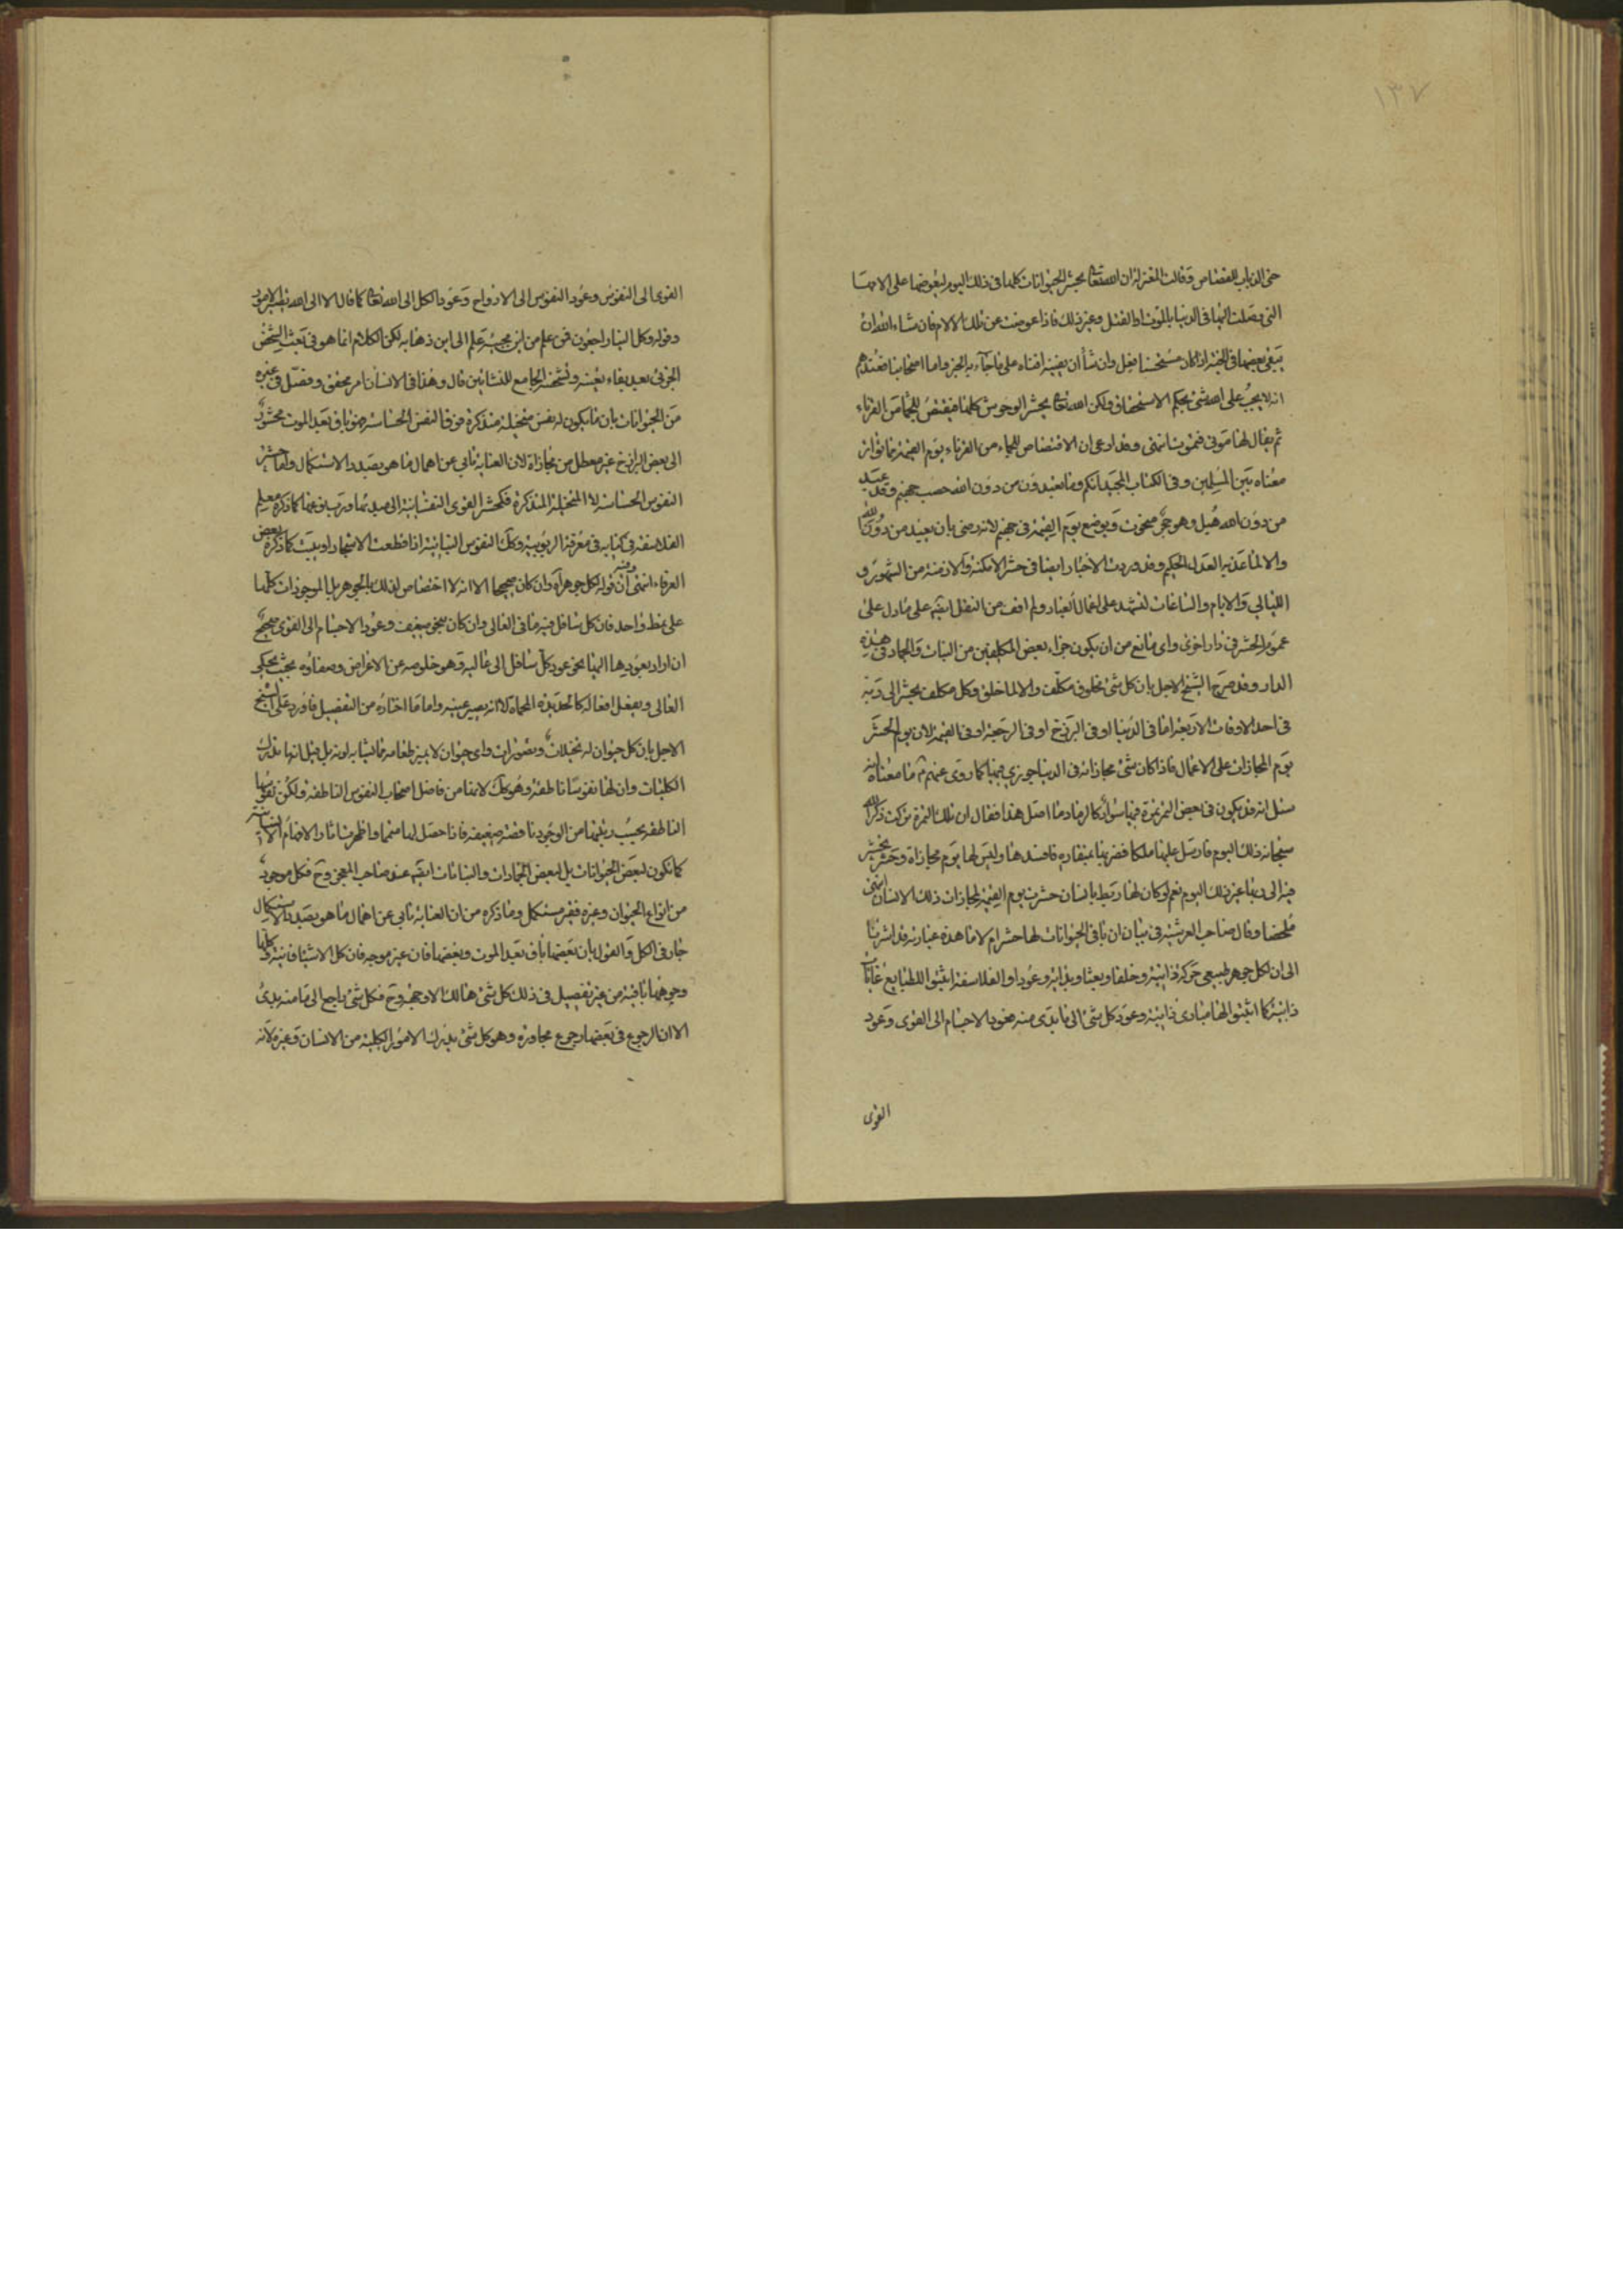 ١٣٧
حتى الذباب للقصاص وقالت المعتزلة ان الله تعالى يحشر الحيوانات كلها في ذلك اليوم ليعوضها على الامها
التي وصلت اليها في الدنيا بالموت او القتل وغير ذلك فاذا عوضت عن تلك الالام فان شاء الله ان
يبقى بعضها في الجنة اذا كان مستحسنا فعل وان شاء ان يفنيه افناه على ما جاء به الخبر واما اصحابنا فعندهم
انه لا يجب على الله شئ بحكم الاستحقاق ولكن الله تعالى يحشر الوحوش كلها فيقتص للجماء من القرناء
ثم يقال لها موتي فتموت انتهى وقد ادعى ان الاقتصاص للجماء من القرناء يوم القيمة مما تواتر
معناه بين المسلمين وفي الكتاب المجيد انكم وما تعبدون من دون الله حصب جهنم وقد عبد
من دون الله هبل وهو حجر منحوت ويوضع يوم القيمة في جهنم لانه رضى بان يعبد من دون الله
والا لما عذبه العدل الحكيم وقد وردت الاخبار ايضا في حشر الامكنة والازمنة من الشهور و
الليالي والايام والساعات لتشهد على اعمال العباد ولم اقف من النقل ايضا على ما دل على
عموم الحشر في دار اخرى واي مانع من ان يكون جزاء بعض المكلفين من النبات والجماد في هذه
الدار وقد صرح الشيخ الاجل بان كل شئ مخلوق مكلف والا لما خلق وكل مكلف يحشر الى ربه
في احد الاوقات الاربعة اما في الدنيا او في البرزخ او في الرجعة او في القيمة لان يوم الحشر
يوم المجازات على الاعمال فاذا كان شئ مجازاته في الدنيا جوزي فيها كما روى عنهم ع ما معناه انه
سئل انه قد يكون في بعض التمر تمرة فيها سواد كالرماد ما اصل هذا فقال ان تلك التمرة تركت ذكر الله
سبحانه ذلك اليوم فارسل عليها ملكا فضربها بمنقاره فافسدها وليس لها يوم مجازاة وحشر يحشر
فيه الى ربها غير ذلك اليوم نعم لو كان لها ربط بانسان حشرت يوم القيمة لمجازات ذلك الانسان انتهى
ملخصا وقال صاحب العرشية في بيان ان باقي الحيوانات لها حشر ام لا ما هذه عبارته قد اشرنا
الى ان لكل جوهر طبيعي حركة ذاتية وخلقا وبعثا وبداية وعودا والفلاسفة اثبتوا للطبايع غايات
ذاتية كما اثبتوا لها مبادى ذاتية وعود كل شئ الى ما بدى منه فعود الاجسام الى القوى وعود
القوى
القوى الى النفوس وعود النفوس الى الارواح وعود الكل الى الله تعالى كما قال الا الى الله تصير الامور
وقوله وكل الينا راجعون فمن علم من اين مجيئه علم الى اين ذهابه لكن الكلام انما هو في بعث الشخص
الجزئي بعيد بقاء تعينه وتشخصه الجامع للنشاتين قال وهذا في الانسان امر محقق وفصل في غيره
من الحيوانات بان ما يكون له نفس متخيلة متذكرة فوق النفس الحساسة فهو باق بعد الموت محشور
الى بعض البرازخ غير معطل من مجازاة لان العناية تابى عن اهمال ما هو بصدد الاستكمال واما حشر
النفوس الحساسة لا المتخيلة المتذكرة فكحشر القوى النفسانية الى مبدئها ورب نوعها كما ذكره معلم
الفلاسفة في كتابه في معرفة الربوبية وكذا النفوس النباتية اذا قطعت الاشجار او يبست كما ذكره بعض
العرفاء انتهى وفيه ان قوله لكل جوهر اه وان كان صحيحا الا انه لا اختصاص لذلك بالجوهر بل الموجودات كلها
على نمط واحد فان كل سافل فيه ما في العالي وان كان بنحو ضعيف وعود الاجسام الى القوى صحيح
ان اراد بعودها اليها نحو عود كل سافل الى عاليه وهو خلوصه عن الاعراض وصفاؤه بحيث يحكى
العالي ويفعل افعاله كالحديدة المحماة لا انه يصير عينه واما ما اختاره من التفصيل فاورد على الشيخ
الاجل بان كل حيوان له تخيلات وتصورات واي حيوان لا يميز طعامه مما يشابه لونه بل قيل انها تدرك
الكليات وان لها نفوسا ناطقة وهو كذلك لانها من فاضل اصحاب النفوس الناطقة ولكن نفوسها
الناطقة بحسب رتبتها من الوجود ناقصة ضعيفة فاذا حصل لها متمم قوى ظهرت اثار الافهام الانسانية
كما تكون لبعض الحيوانات بل لبعض الجمادات والنباتات ايضا عند صاحب المعجز وح فكل موجود
من انواع الحيوان وغيره فقير مستكمل وما ذكره من ان العناية تابى عن اهمال ما هو بصدد الاستكمال
جار في الكل والقول بان بعضها باق بعد الموت وبعضها فان غير موجه فان كل الاشياء فانية كلها
وجوهها باقية من غير تفصيل في ذلك كل شئ هالك الا وجهه وح فكل شئ راجع الى ما منه بدئ
الا ان الرجوع في بعضها رجوع مجاورة وهو كل شئ يدرك الامور الكلية من الانسان وغيره لانه